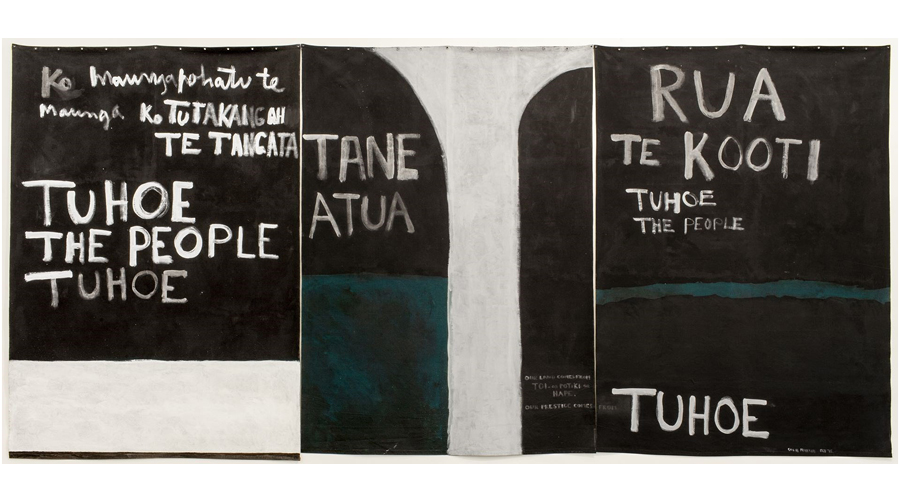 Ko Maungapohatu te
Maunga Ko TUTAKANGAH
TE TANGATA
TUHOE
THE PEOPLE
TUHOE
TANE
ATUA
OUR LAND COMES FROM
TOI AND POTIKI AND
HAPE.
OUR PRESTIGE COMES FROM
RUA
TE KOOTI
TUHOE
THE PEOPLE
TUHOE